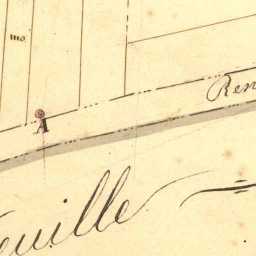 mo
Ren
A
euille